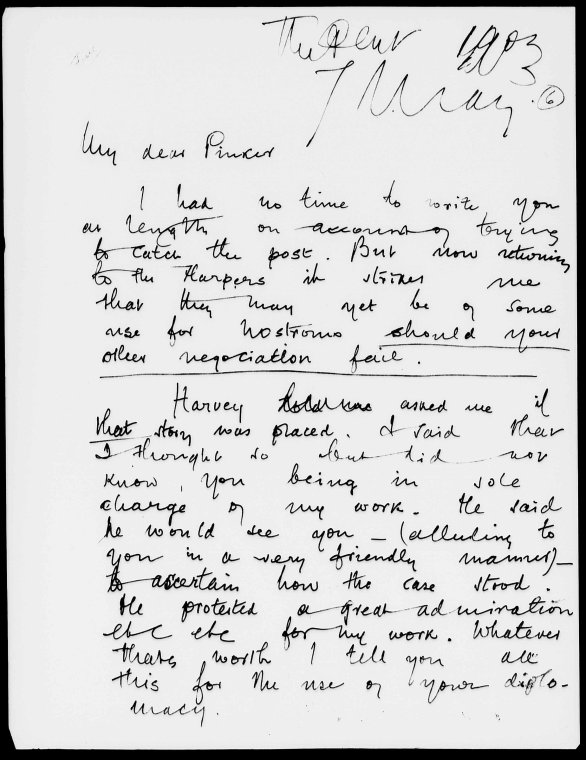 The Pent 1903
7 May. 6
My dear Pinker
I had no time to write you
at length on account of trying
to catch the post. But now returning
to the Harpers it strikes me
that they may yet be of some
use for Nostromo should your
other negociation fail.
Harvey asked me if
that story was placed. I said that
I thought so but did not
know, you being in sole
charge of my work. He said
he would see you – (alluding to
you in a very friendly manner) –
to ascertain how the case stood.
He protested a great admiration
etc etc for my work. Whatever
thats worth I tell you all
this for the use of your diplo-
macy.